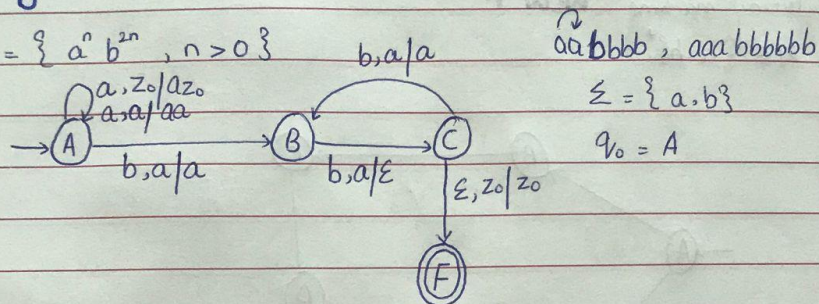 = { aⁿ b²ⁿ , n > 0 }
aabbbb , aaabbbbbb
b,a/a
a,z₀/az₀
a,a/aa
Σ = { a,b }
A
B
C
q₀ = A
b,a/a
b,a/ε
ε,z₀/z₀
F